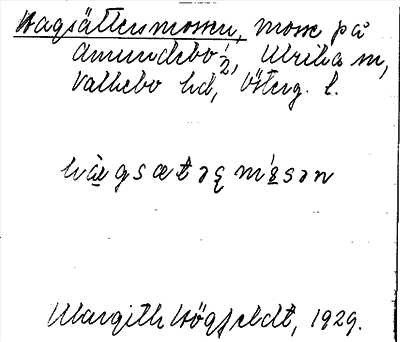 Hagsättersmossen, mosse på
Amundebo 1/2, Ulrika sn,
Valkebo hd, Österg. l.
Margith Högfeldt, 1929.